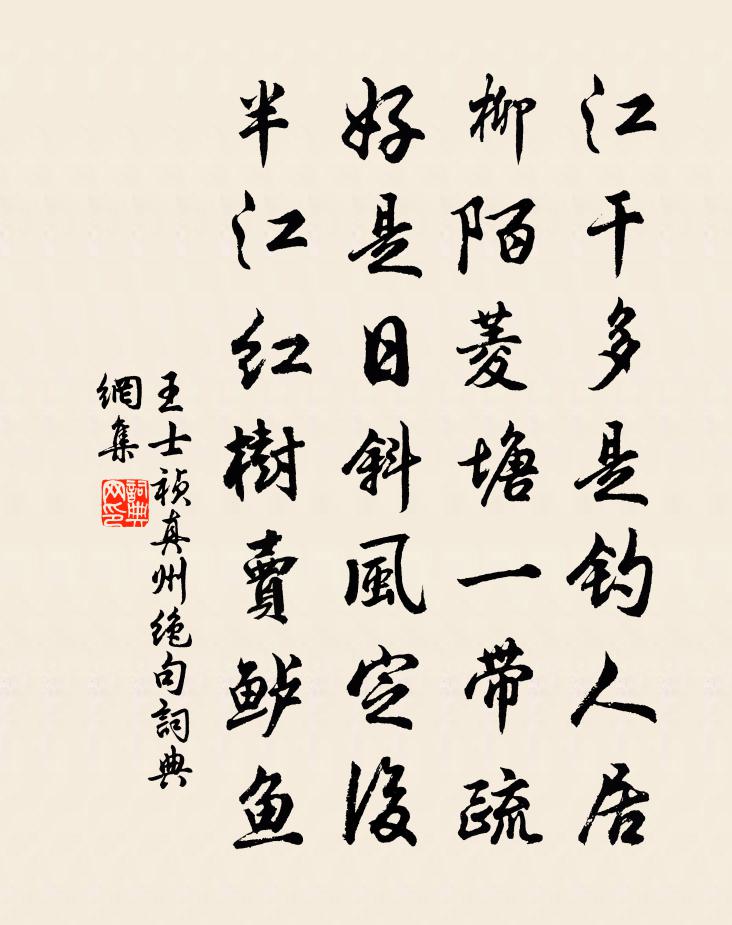 江干多是钓人居
柳陌菱塘一带疏
好是日斜風定後
半江红樹賣鲈鱼
王士祯真州绝句詞典
網集
詞典
网印